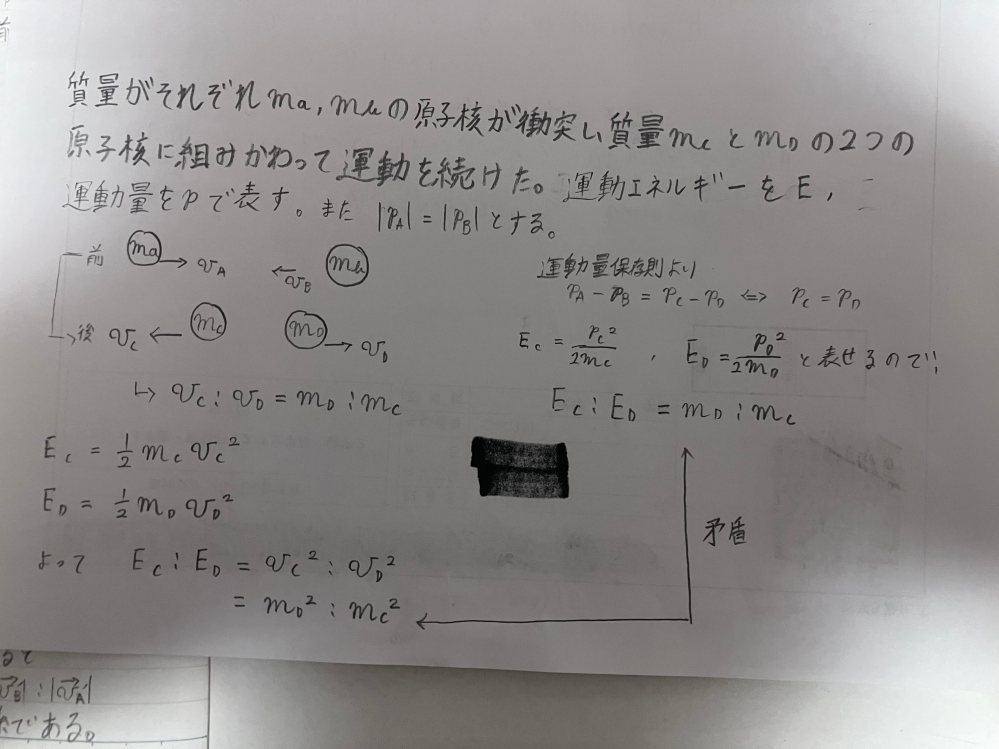 前
質量がそれぞれ ma, mb の原子核が衝突し質量 mc と mD の2つの
原子核に組みかわって運動を続けた。運動エネルギーを E,
運動量を p で表す。また |pA| = |pB| とする。
前 ma → vA ← vB mb
後 vC ← mc mD → vD
↳ vC : vD = mD : mC
EC = 1/2 mC vC²
ED = 1/2 mD vD²
よって EC : ED = vC² : vD²
= mD² : mC²
運動量保存則より
pA - pB = pC - pD ⇔ pC = pD
EC = pC²/2mC , ED = pD²/2mD と表せるので
EC : ED = mD : mC
矛盾
|vB| : |vA|
である。